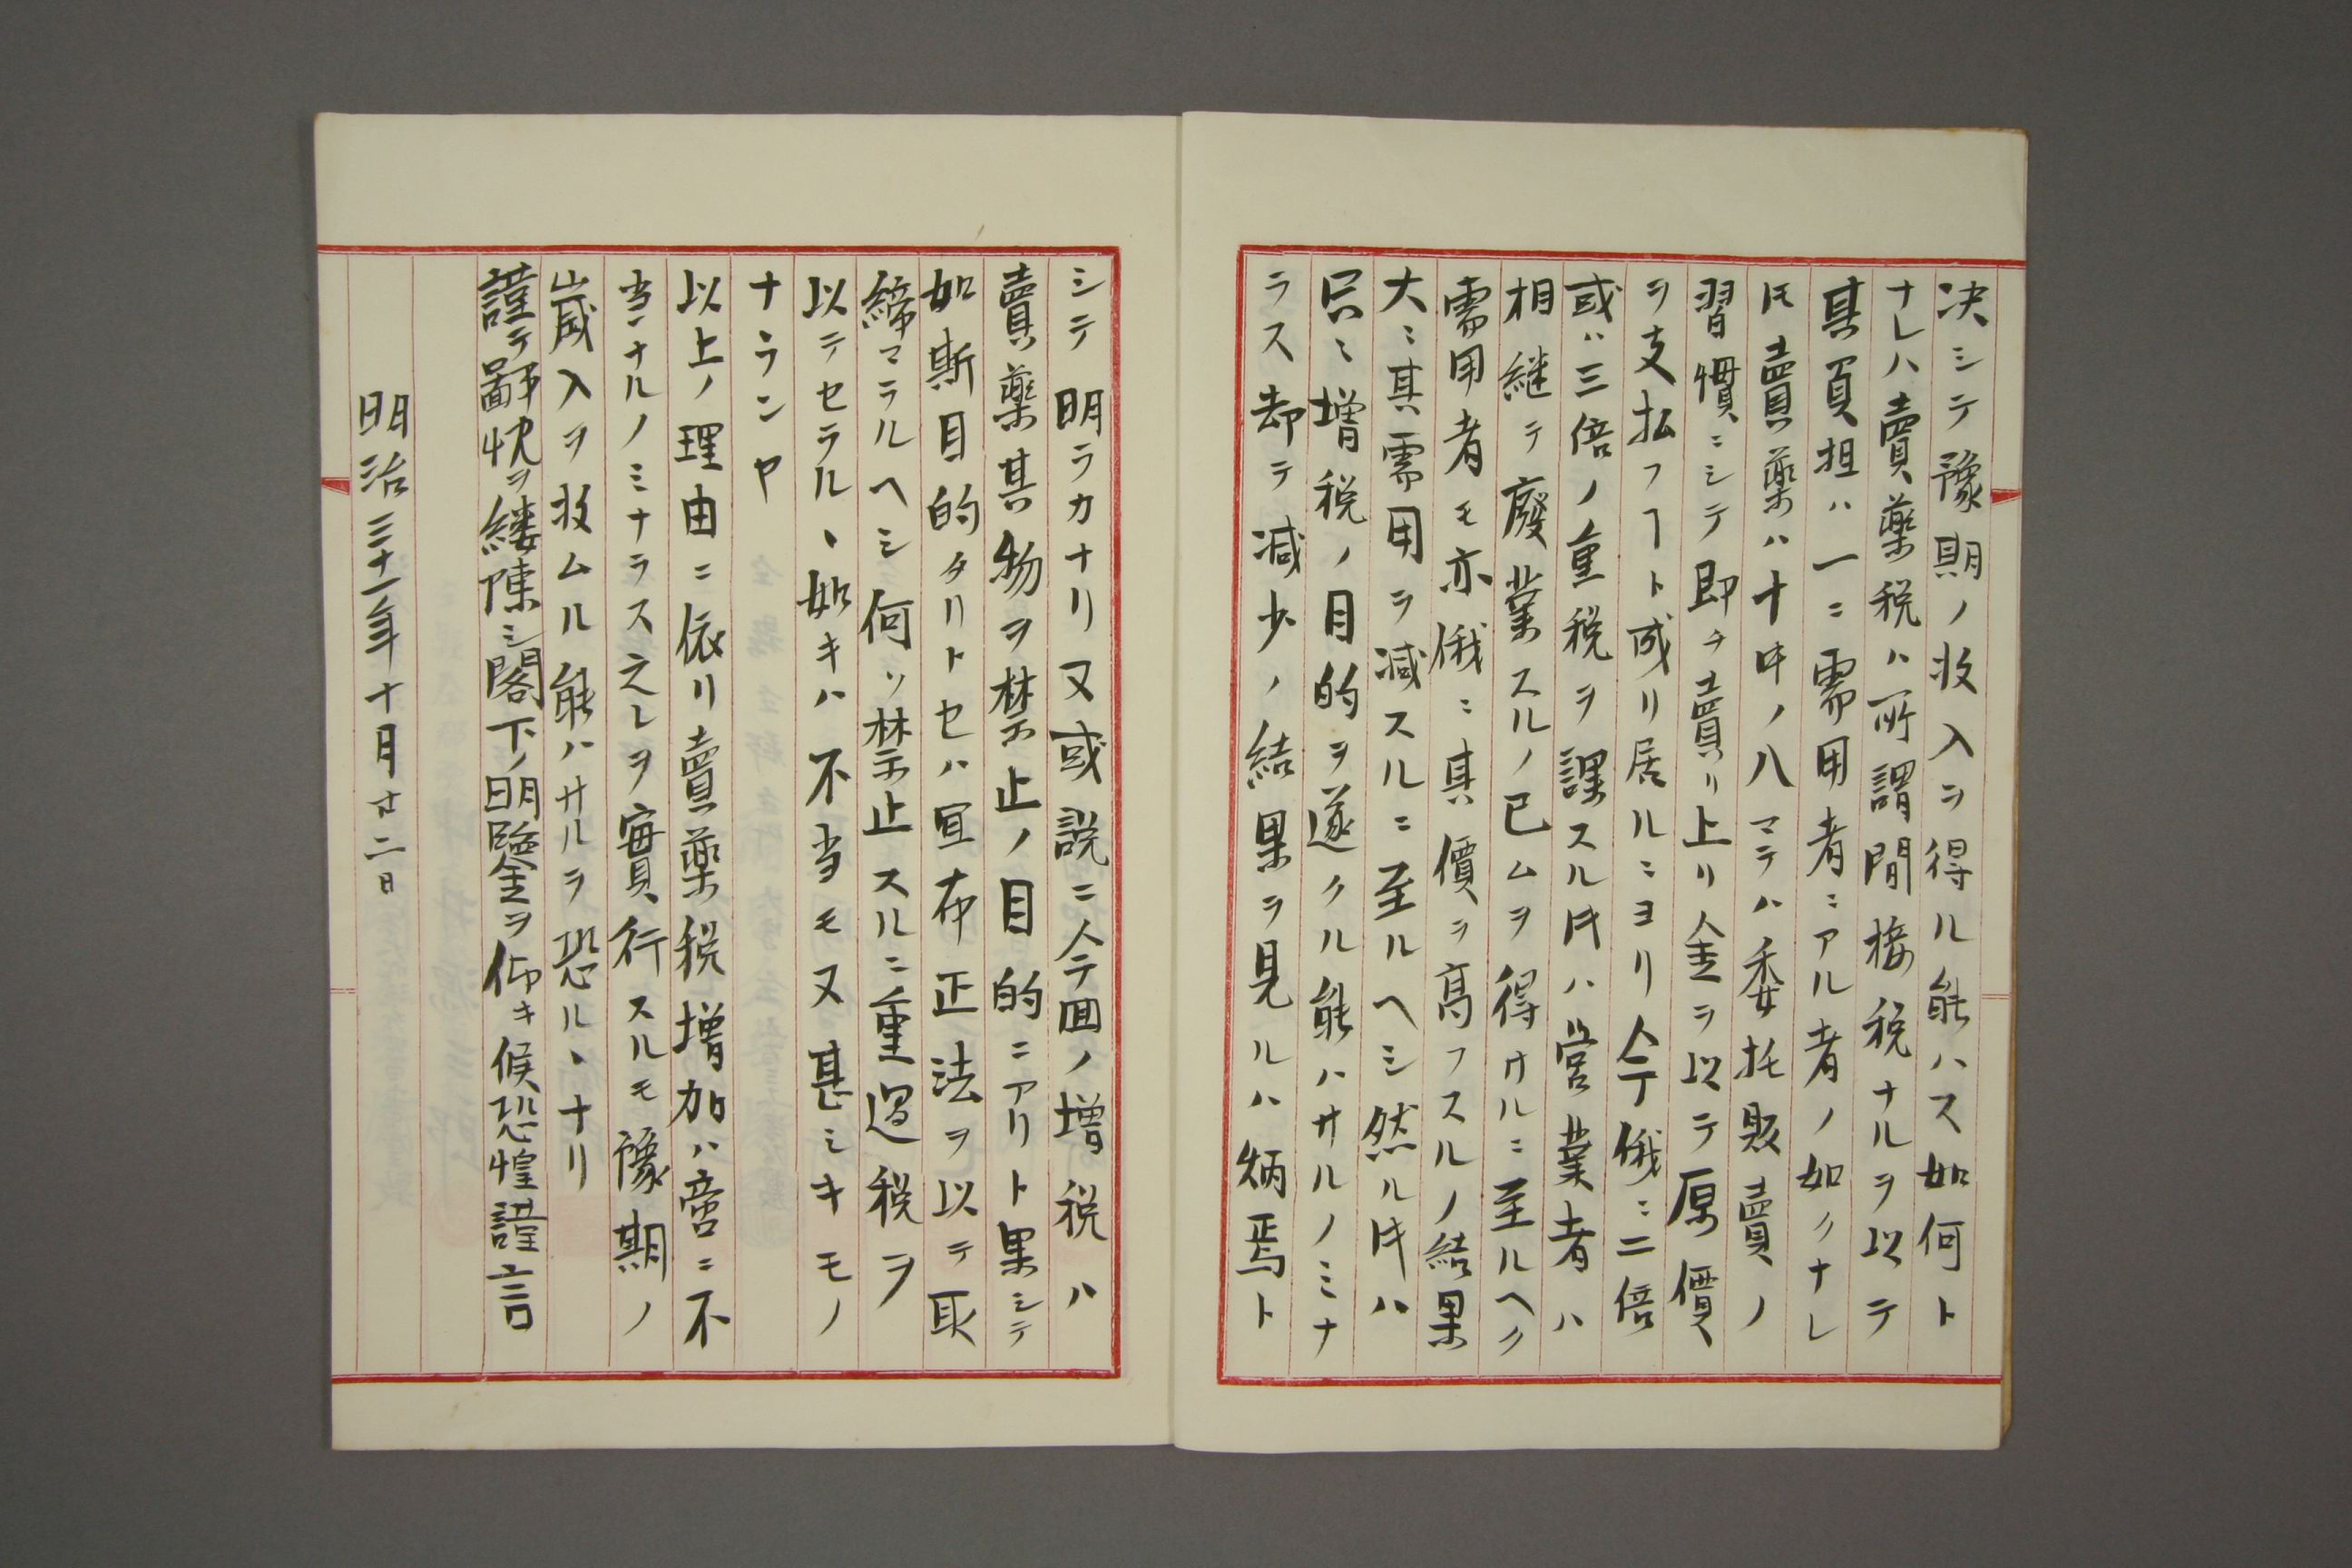 决シテ豫期ノ收入ヲ得ル能ハス如何ト
ナレハ賣藥税ハ所謂間接税ナルヲ以テ
其負担ハ一ニ需用者ニアル者ノ如クナレ
𪜈賣藥ハ十中ノ八マテハ委托販賣ノ
習慣ニシテ即チ賣リ上リ金ヲ以テ原價
ヲ支払フヿト成リ居ルニヨリ今俄ニ二倍
或ハ三倍ノ重税ヲ課スル𪜈ハ営業者ハ
相継テ廢業スルノ已ムヲ得サルニ至ルヘク
需用者モ亦俄ニ其價ヲ高フスルノ結果
大ニ其需用ヲ減スルニ至ルヘシ然ル𪜈ハ
只ニ増税ノ目的ヲ遂クル能ハサルノミナ
ラス却テ減少ノ結果ヲ見ルハ炳焉ト
シテ明ラカナリ又或説ニ今回ノ増税ハ
賣藥其物ヲ禁止ノ目的ニアリト果シテ
如斯目的タリトセハ宜布正法ヲ以テ取
締マラルヘシ何ソ禁止スルニ重過税ヲ
以テセラルヽ如キハ不当モ又甚シキモノ
ナランヤ
以上ノ理由ニ依リ賣藥税増加ハ啻ニ不
当ナルノミナラス之レヲ實行スルモ豫期ノ
歳入ヲ收ムル能ハサルヲ恐ルヽナリ
謹テ鄙忱ヲ縷陳シ閣下ノ明鑒ヲ仰キ候恐惶謹言
明治三十一年十月廿二日